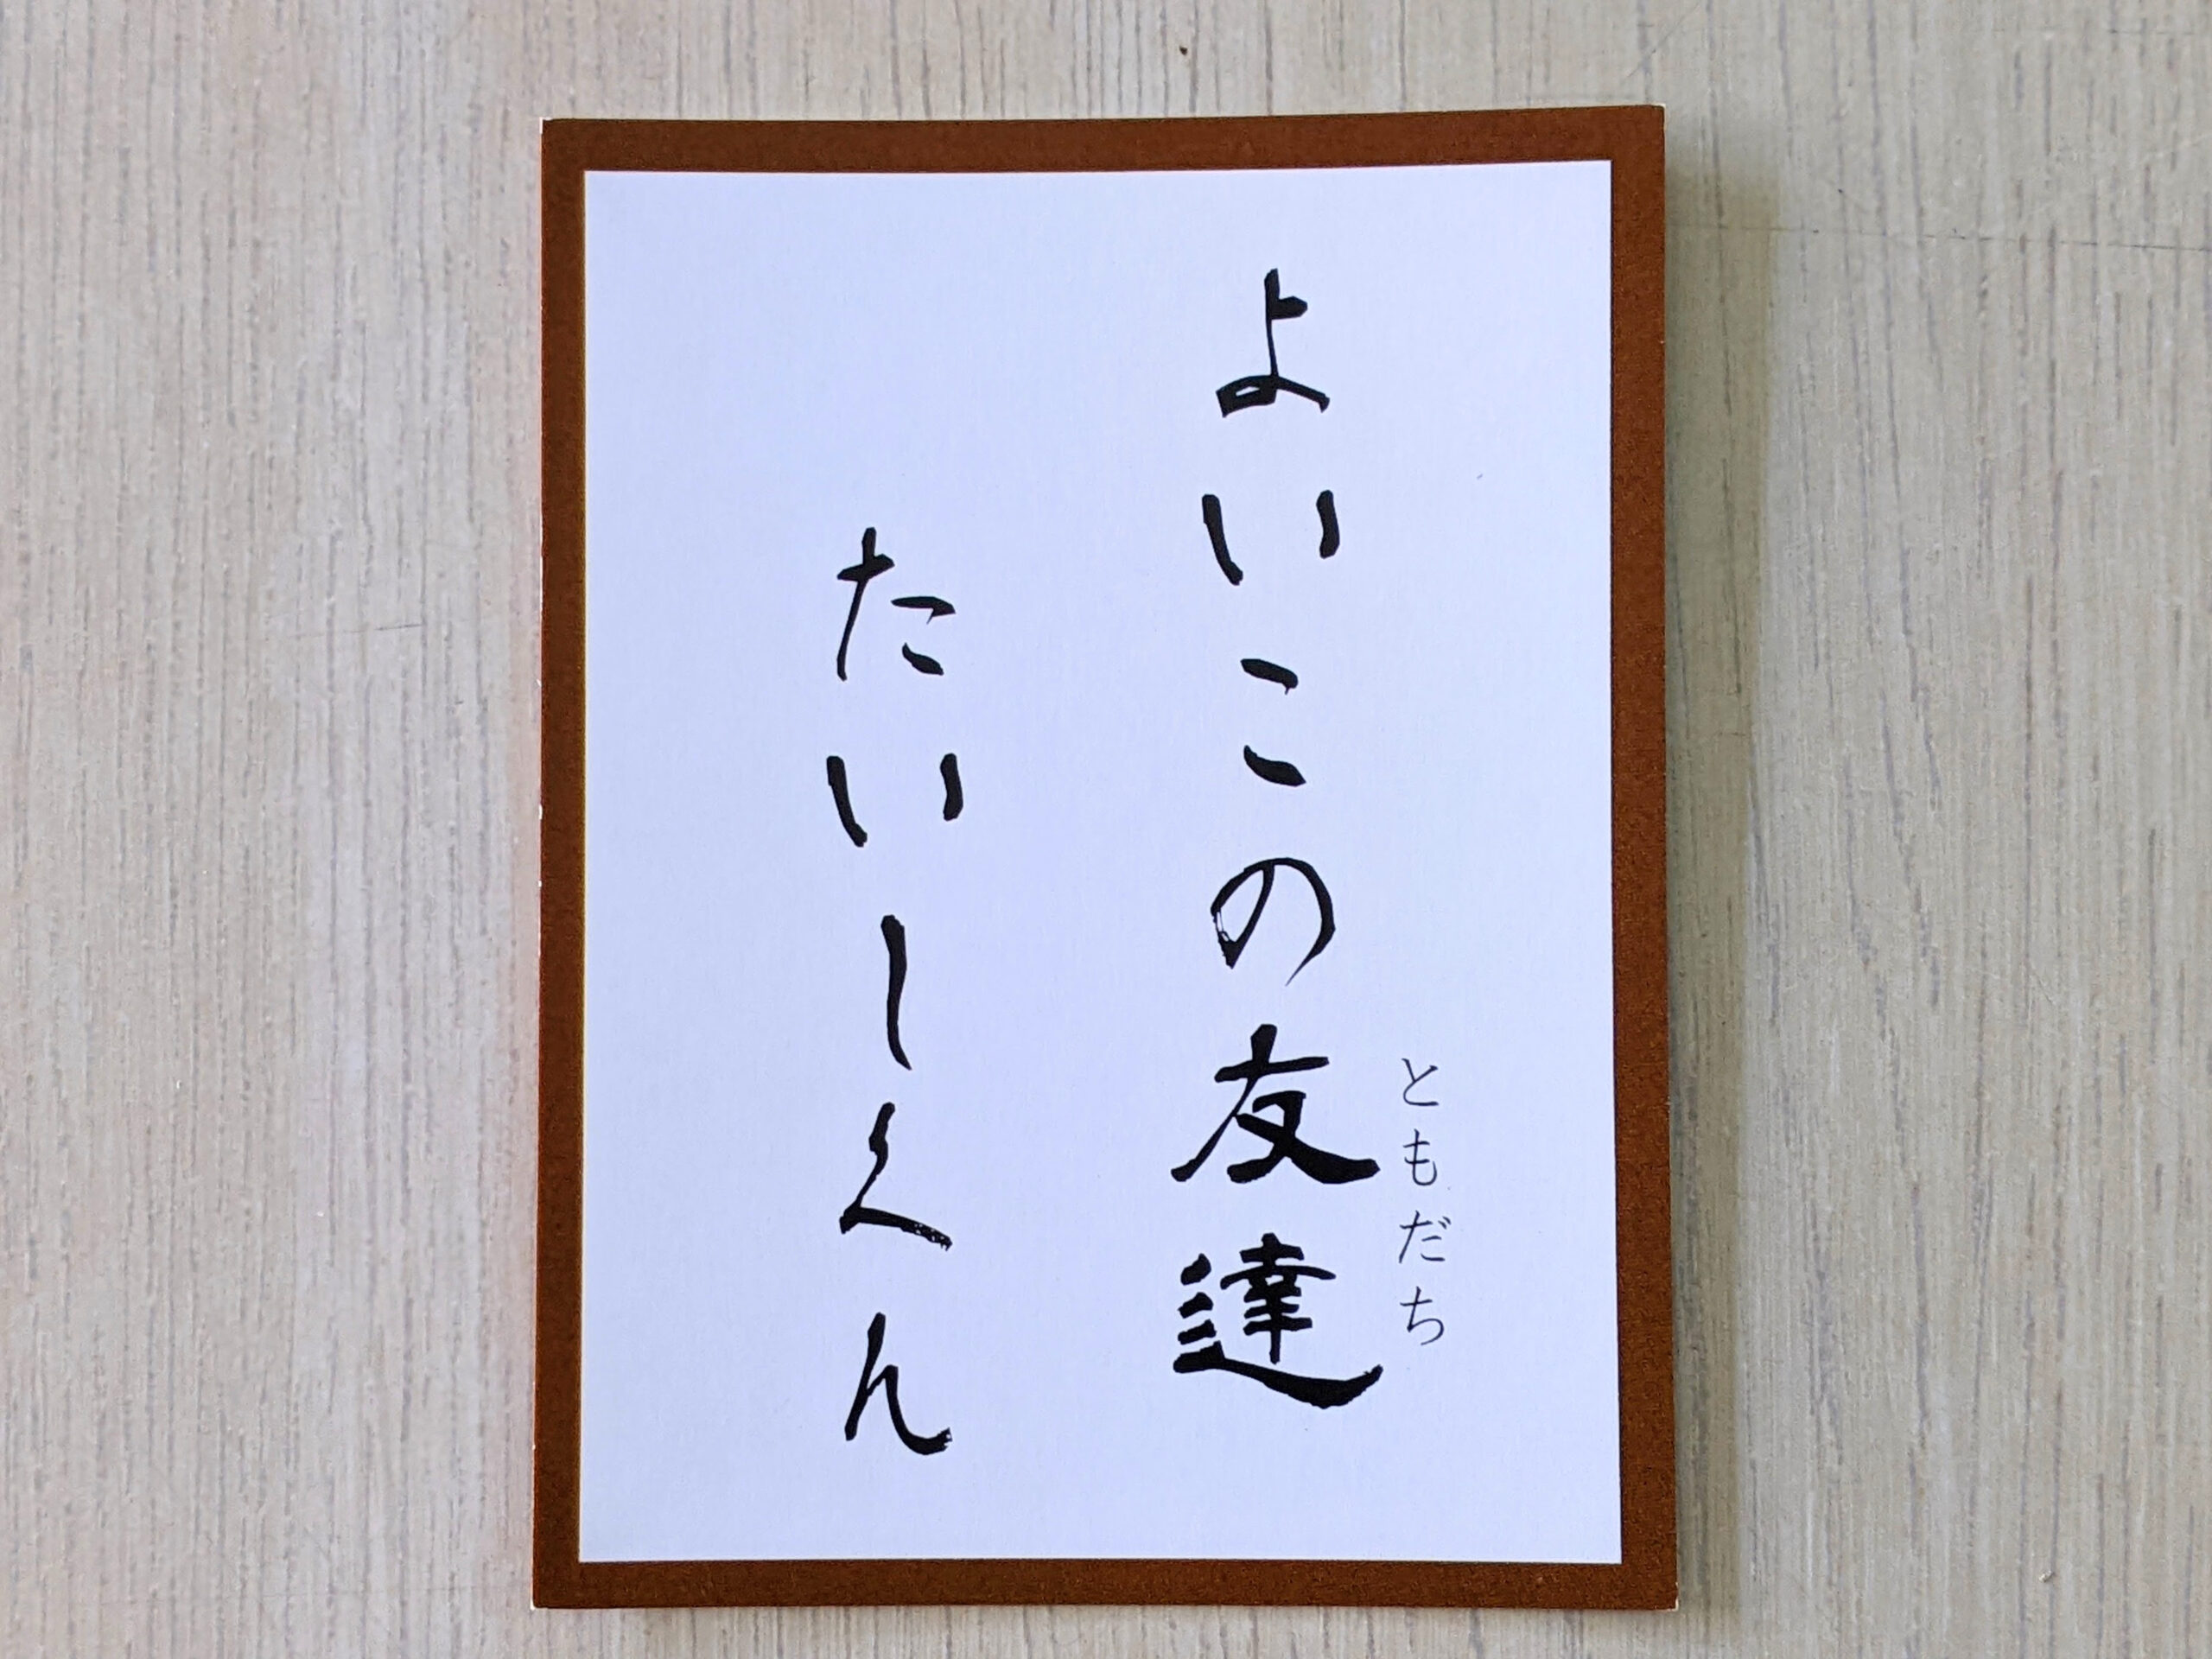 よいこの友達
ともだち
たいしくん